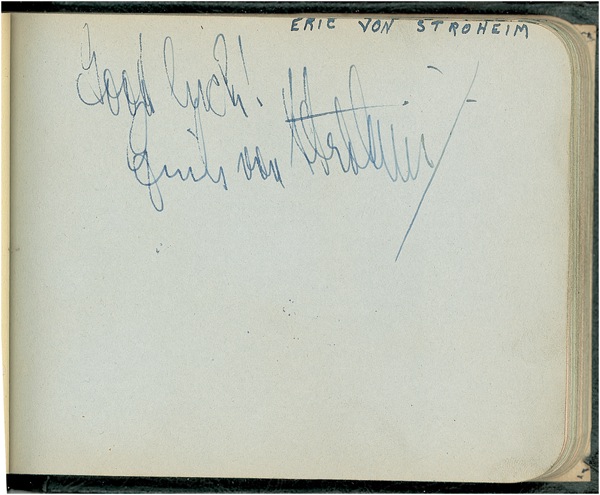 ERIC VON STROHEIM
Good luck!
Erich von Stroheim